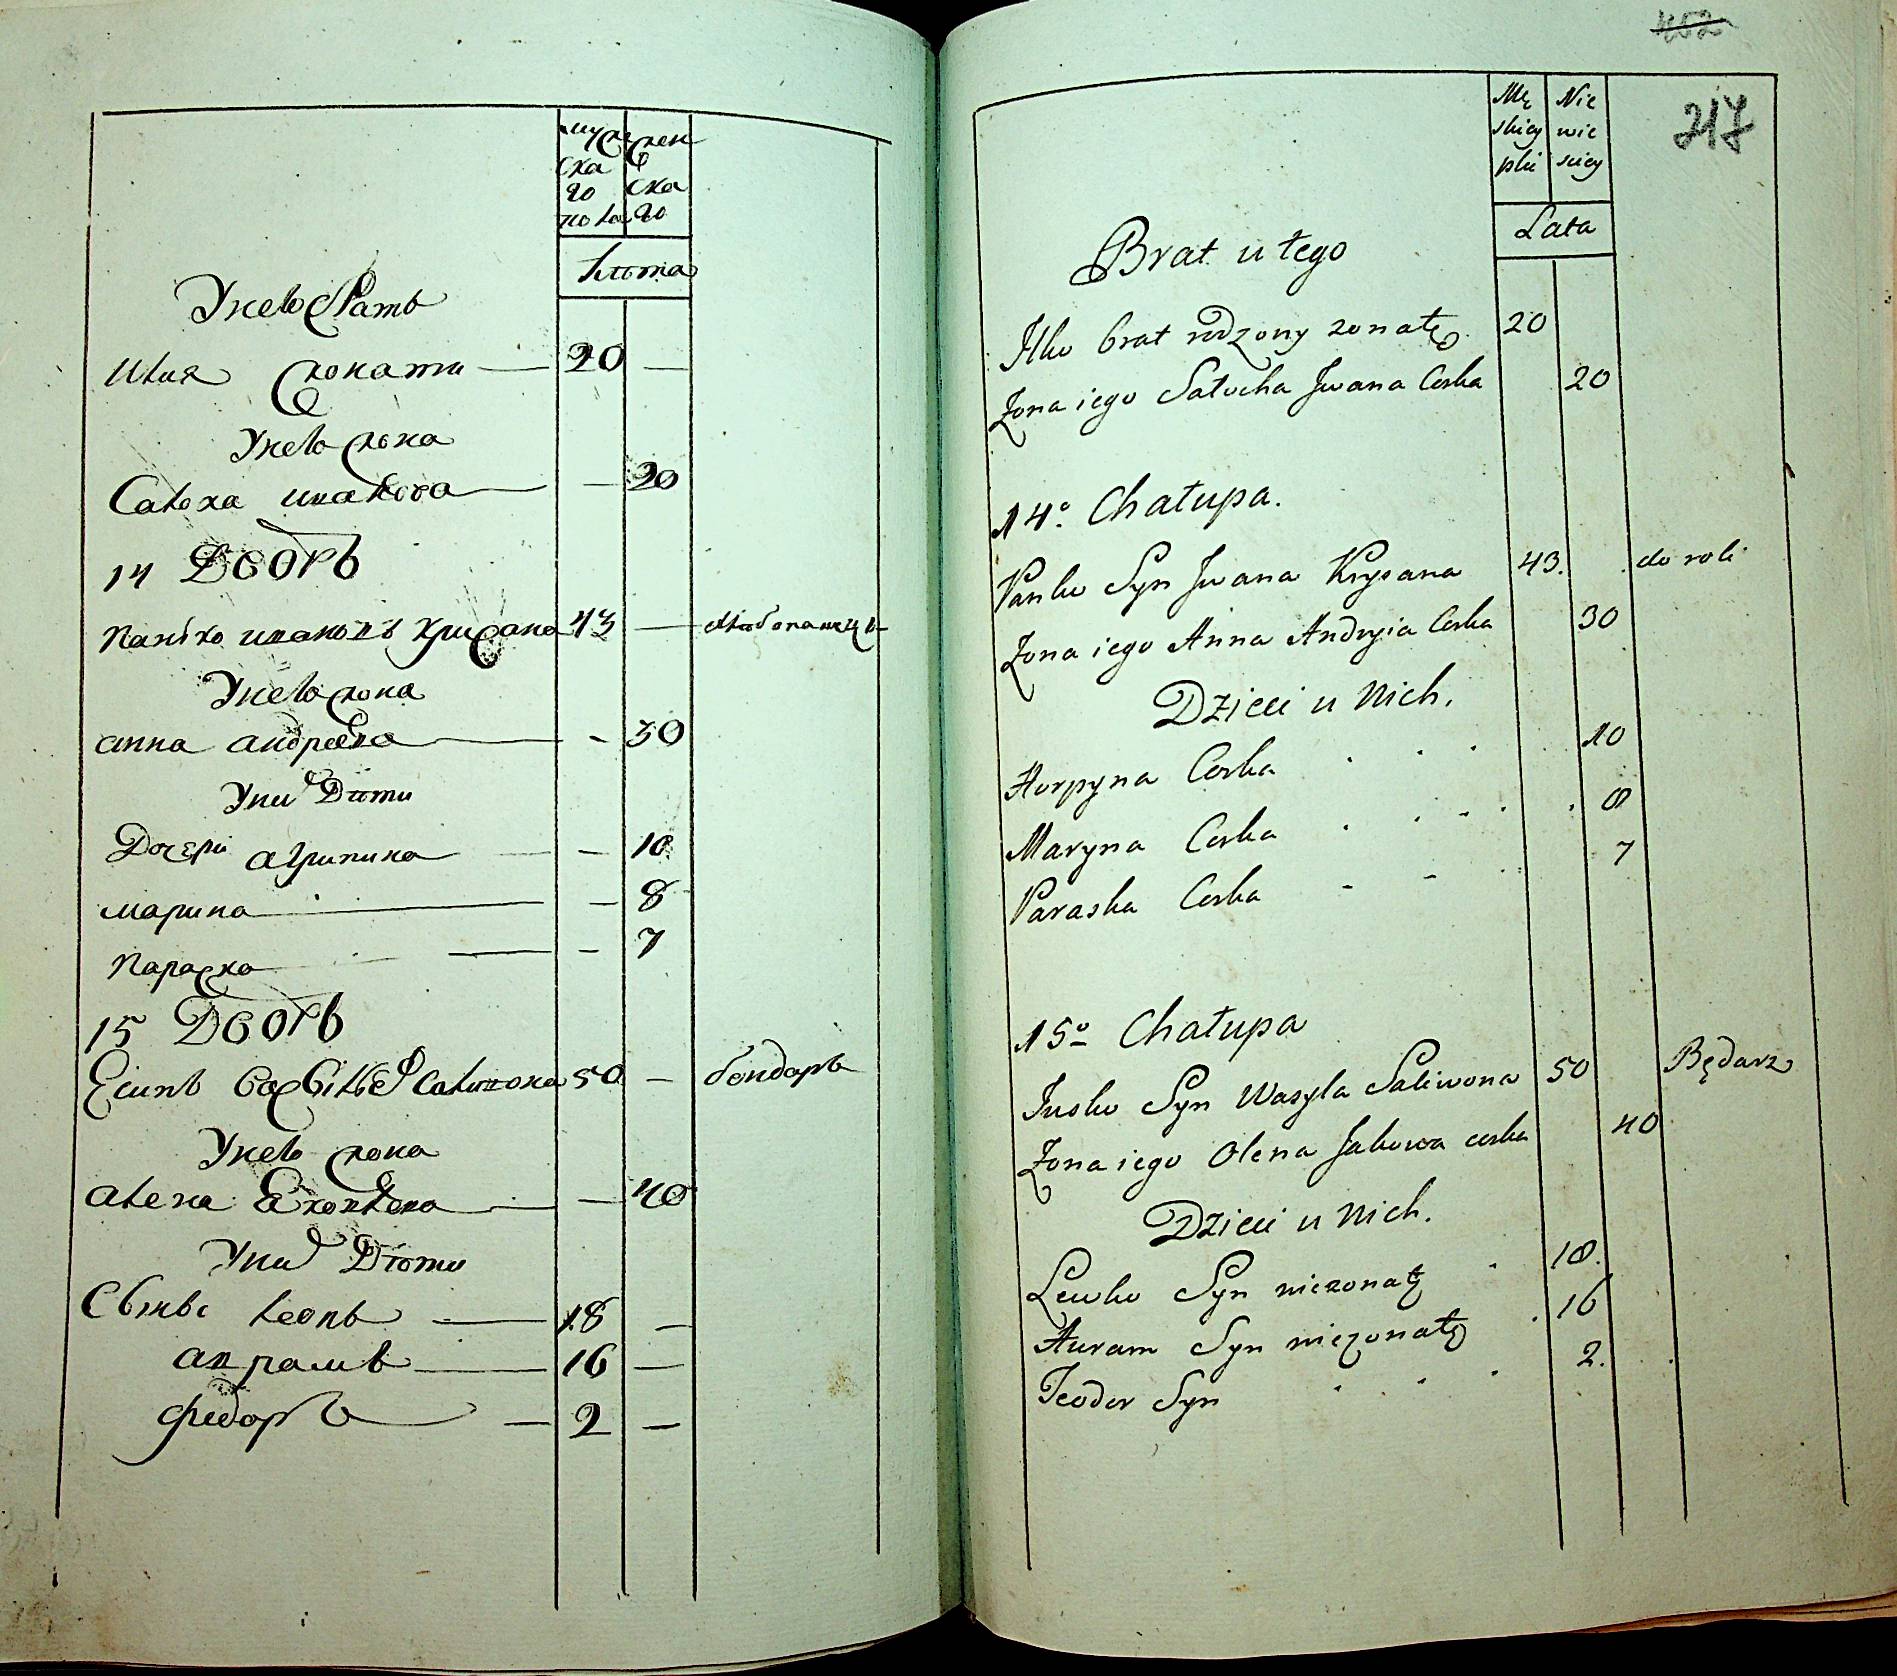 мужеска го пола
женска го
лѣта
У него братъ
Илия женатъ — 20 —
У него жона
Салоха иванова — — 20
14 Дворъ
Панько ивановъ Крисана 43 — хлѣбопашец
У него жона
анна андреева — — 30
У них Дѣти
Дочери агрипина — — 10
марина — — 8
Параска — — 7
15 Дворъ
Есипъ Васильев Саливона 50 — бондаръ
У него жона
алена Яковлева — — 40
У них Дѣти
Синъве леонъ — 18 —
авраамъ — 16 —
федоръ — 2 —
452
217
Mę skiey płci
Nie wie sciey
Lata
Brat u tego
Ilko brat rodzony zonaty. 20
Zona iego Sałocha Jwana Corka 20
14o. Chałupa.
Panko Syn Jwana Krysana 43. do roli
Zona iego Anna Andryia Corka 30
Dzieci u Nich.
Horpyna Corka 10
Maryna Corka 8
Paraska Corka 7
15o Chałupa
Jusko Syn Wasyla Saliwona 50 Będarz
Zona iego Olena Jakowa corka 40
Dzieci u Nich.
Lewko Syn niezonaty 18.
Awram Syn niezonaty 16
Teodor Syn 2.